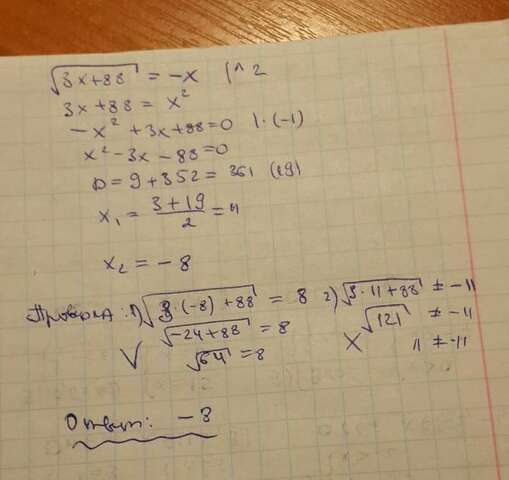 √(3x+88) = -x |^2
3x+88 = x²
-x² + 3x + 88 = 0 | · (-1)
x² - 3x - 88 = 0
D = 9 + 352 = 361 (19)
x₁ = (3+19)/2 = 11
x₂ = -8
Проверка: 1) √(3·(-8) + 88) = 8 2) √(3·11+88) ≠ -11
√(-24+88) = 8 √121 ≠ -11
V √64 = 8 X 11 ≠ -11
Ответ: -8